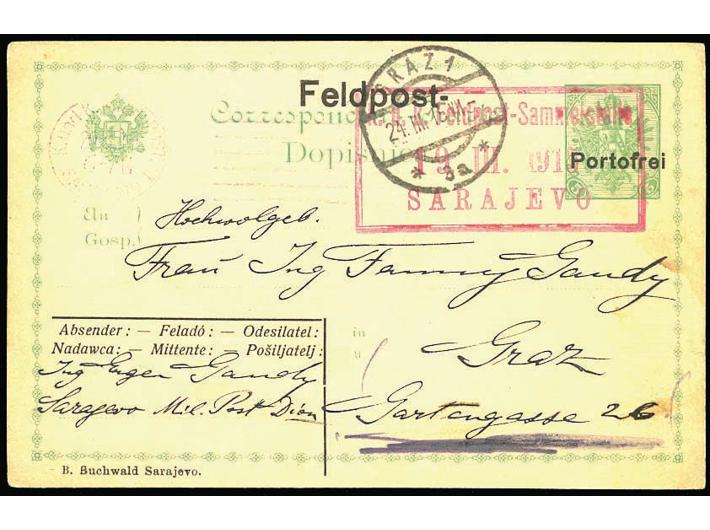 GRAZ 1
Feldpost-
Correspondenz
Feldpost-Sammelstelle
24.III.15
Dopisnica
19. III. 1915
Portofrei
* 8a *
SARAJEVO
An
Gosp.
Hochwolgeb.
Frau Ing Fanny Gandy
Absender: — Feladó: — Odesilatel:
in
Nadawca: — Mittente: — Pošiljatelj:
u
Graz
Ing Eugen Gandy
Sarajevo Mil. Post Dion
Gartengasse 26
B. Buchwald Sarajevo.